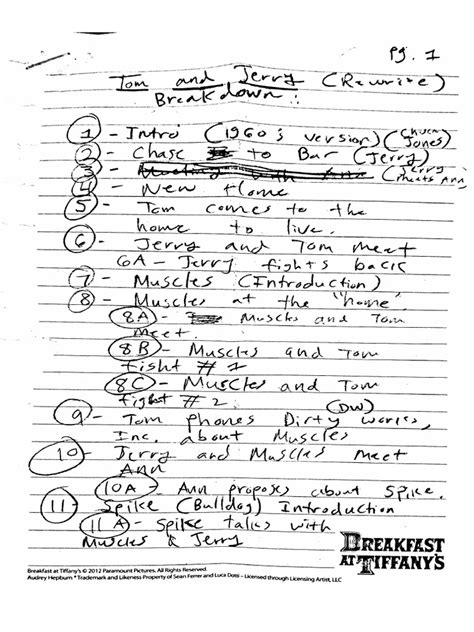 Pg. 1
Tom and Jerry (Rewrite)
Breakdown:
1 - Intro (1960's version) (Chuck Jones)
2 - Chase to Bar (Jerry)
3 - Meeting with Ann (Jerry meets Ann)
4 - New Home
5 - Tom comes to the
home to live.
6 - Jerry and Tom meet
6A - Jerry fights back
7 - Muscles (Introduction)
8 - Muscles at the "home"
8A - Muscles and Tom
meet
8B - Muscles and Tom
fight # 1
8C - Muscles and Tom
fight # 2
(DW)
9 - Tom phones Dirty works,
Inc. about Muscles
10 - Jerry and Muscles meet
Ann
10A - Ann proposes about Spike.
11 - Spike (Bulldog) Introduction
11A - Spike talks with
Muscles & Jerry
BREAKFAST
AT TIFFANY'S
Breakfast at Tiffany's © 2012 Paramount Pictures. All Rights Reserved.
Audrey Hepburn ™ Trademark and Likeness Property of Sean Ferrer and Luca Dotti – Licensed through Licensing Artist, LLC